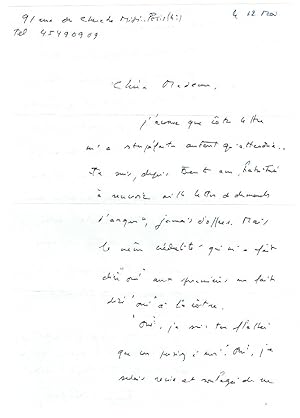 91 rue du Cherche Midi. Paris (6e) le 12 Mai
Tel 45490909
Chère Madame,
j'avoue que votre lettre
m'a stupéfaite autant qu'attendrie.
Je suis, depuis trente ans, habituée
à recevoir mille lettres de demande
d'argent, jamais d'offres. Mais
la même crédulité qui m'a fait
dire "oui" aux premières me fait
dire "oui" à la vôtre.
"Oui", je suis très flattée
que on à moi! Oui, je
serais ravie et soulagée de me